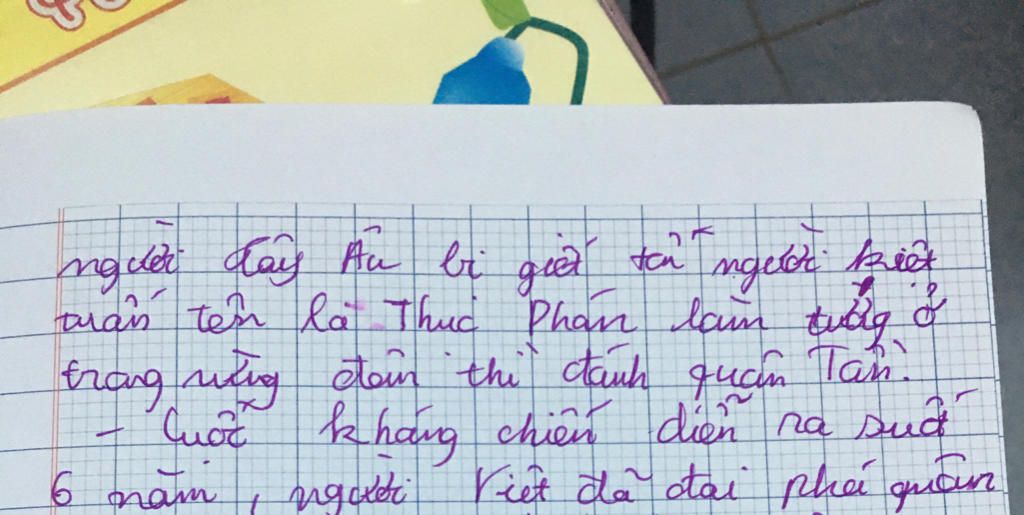 người Tây Âu bị giết tôn người kiệt
tuấn tên là Thục Phán làm tướng ở
trong rừng đêm thì đánh quân Tần.
- Cuộc kháng chiến diễn ra suốt
6 năm, người Việt đã đại phá quân